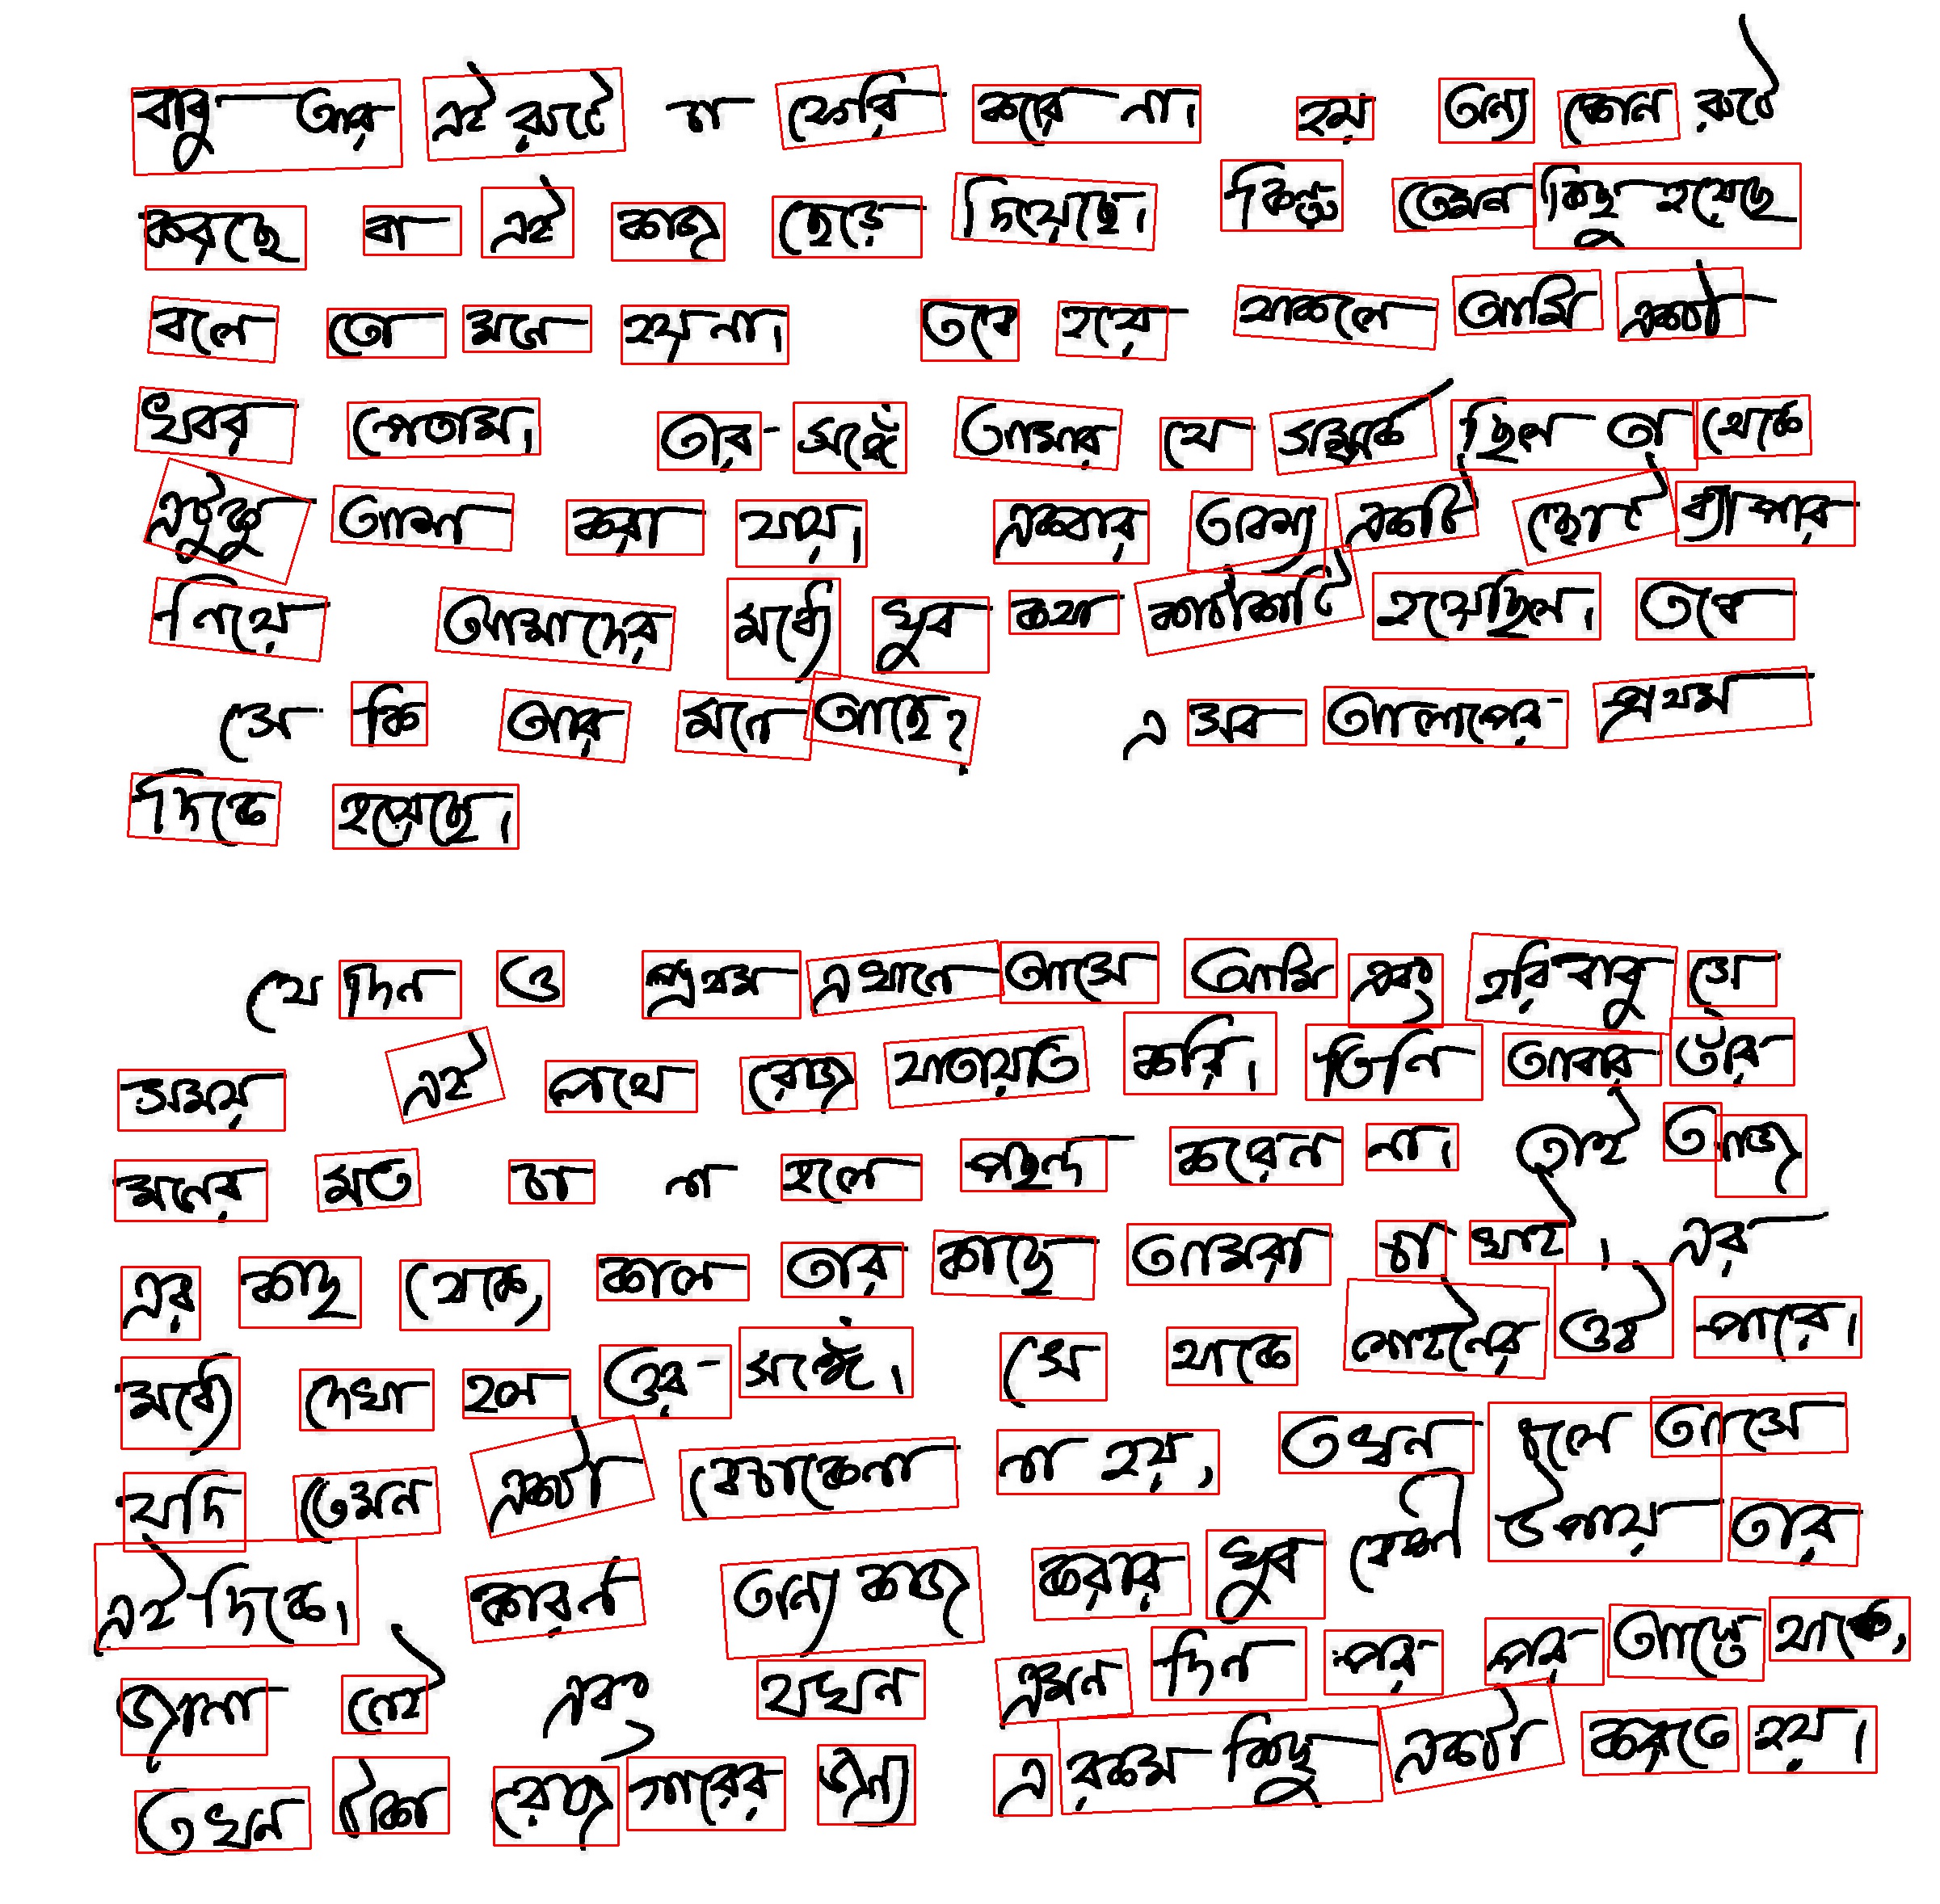 বাবু আর এই রুটে চা ফেরি করে না। হয় অন্য কোন রুটে
করছে বা এই কাজ ছেড়ে দিয়েছে। কিন্তু তেমন কিছু হয়েছে
বলে তো মনে হয় না। তবে হয়ে থাকলে আমি একটা
খবর পেতাম। তার সঙ্গে আমার যে সম্পর্ক ছিল তা থেকে
এটুকু আশা করা যায়। একবার অবশ্য একটি ছোট ব্যাপার
নিয়ে আমাদের মধ্যে খুব কথা কাটাকাটি হয়েছিল। তবে
সে কি আর মনে আছে? এ সব আলাপের প্রথম
দিকে হয়েছে।
যে দিন ও প্রথম এখানে আসে আমি এবং হরি বাবু সে
সময় এই পথে রোজ যাতায়াত করি। তিনি আবার তাঁর
মনের মত চা না হলে পছন্দ করেন না। তাই আজ
এর কাছ থেকে, কাল তার কাছে আমরা চা খাই, এর
মধ্যে দেখা হল ওর সঙ্গে। সে থাকে লাইনের ওই পারে।
যদি তেমন একটা বেচাকেনা না হয়, তখন চলে আসে
এই দিকে। কারন অন্য কাজ করার খুব বেশী উপায় তার
জানা নেই এবং যখন এমন দিন পর পর আসতে থাকে,
তখন টাকা রোজগারের জন্য এ রকম কিছু একটা করতে হয়।